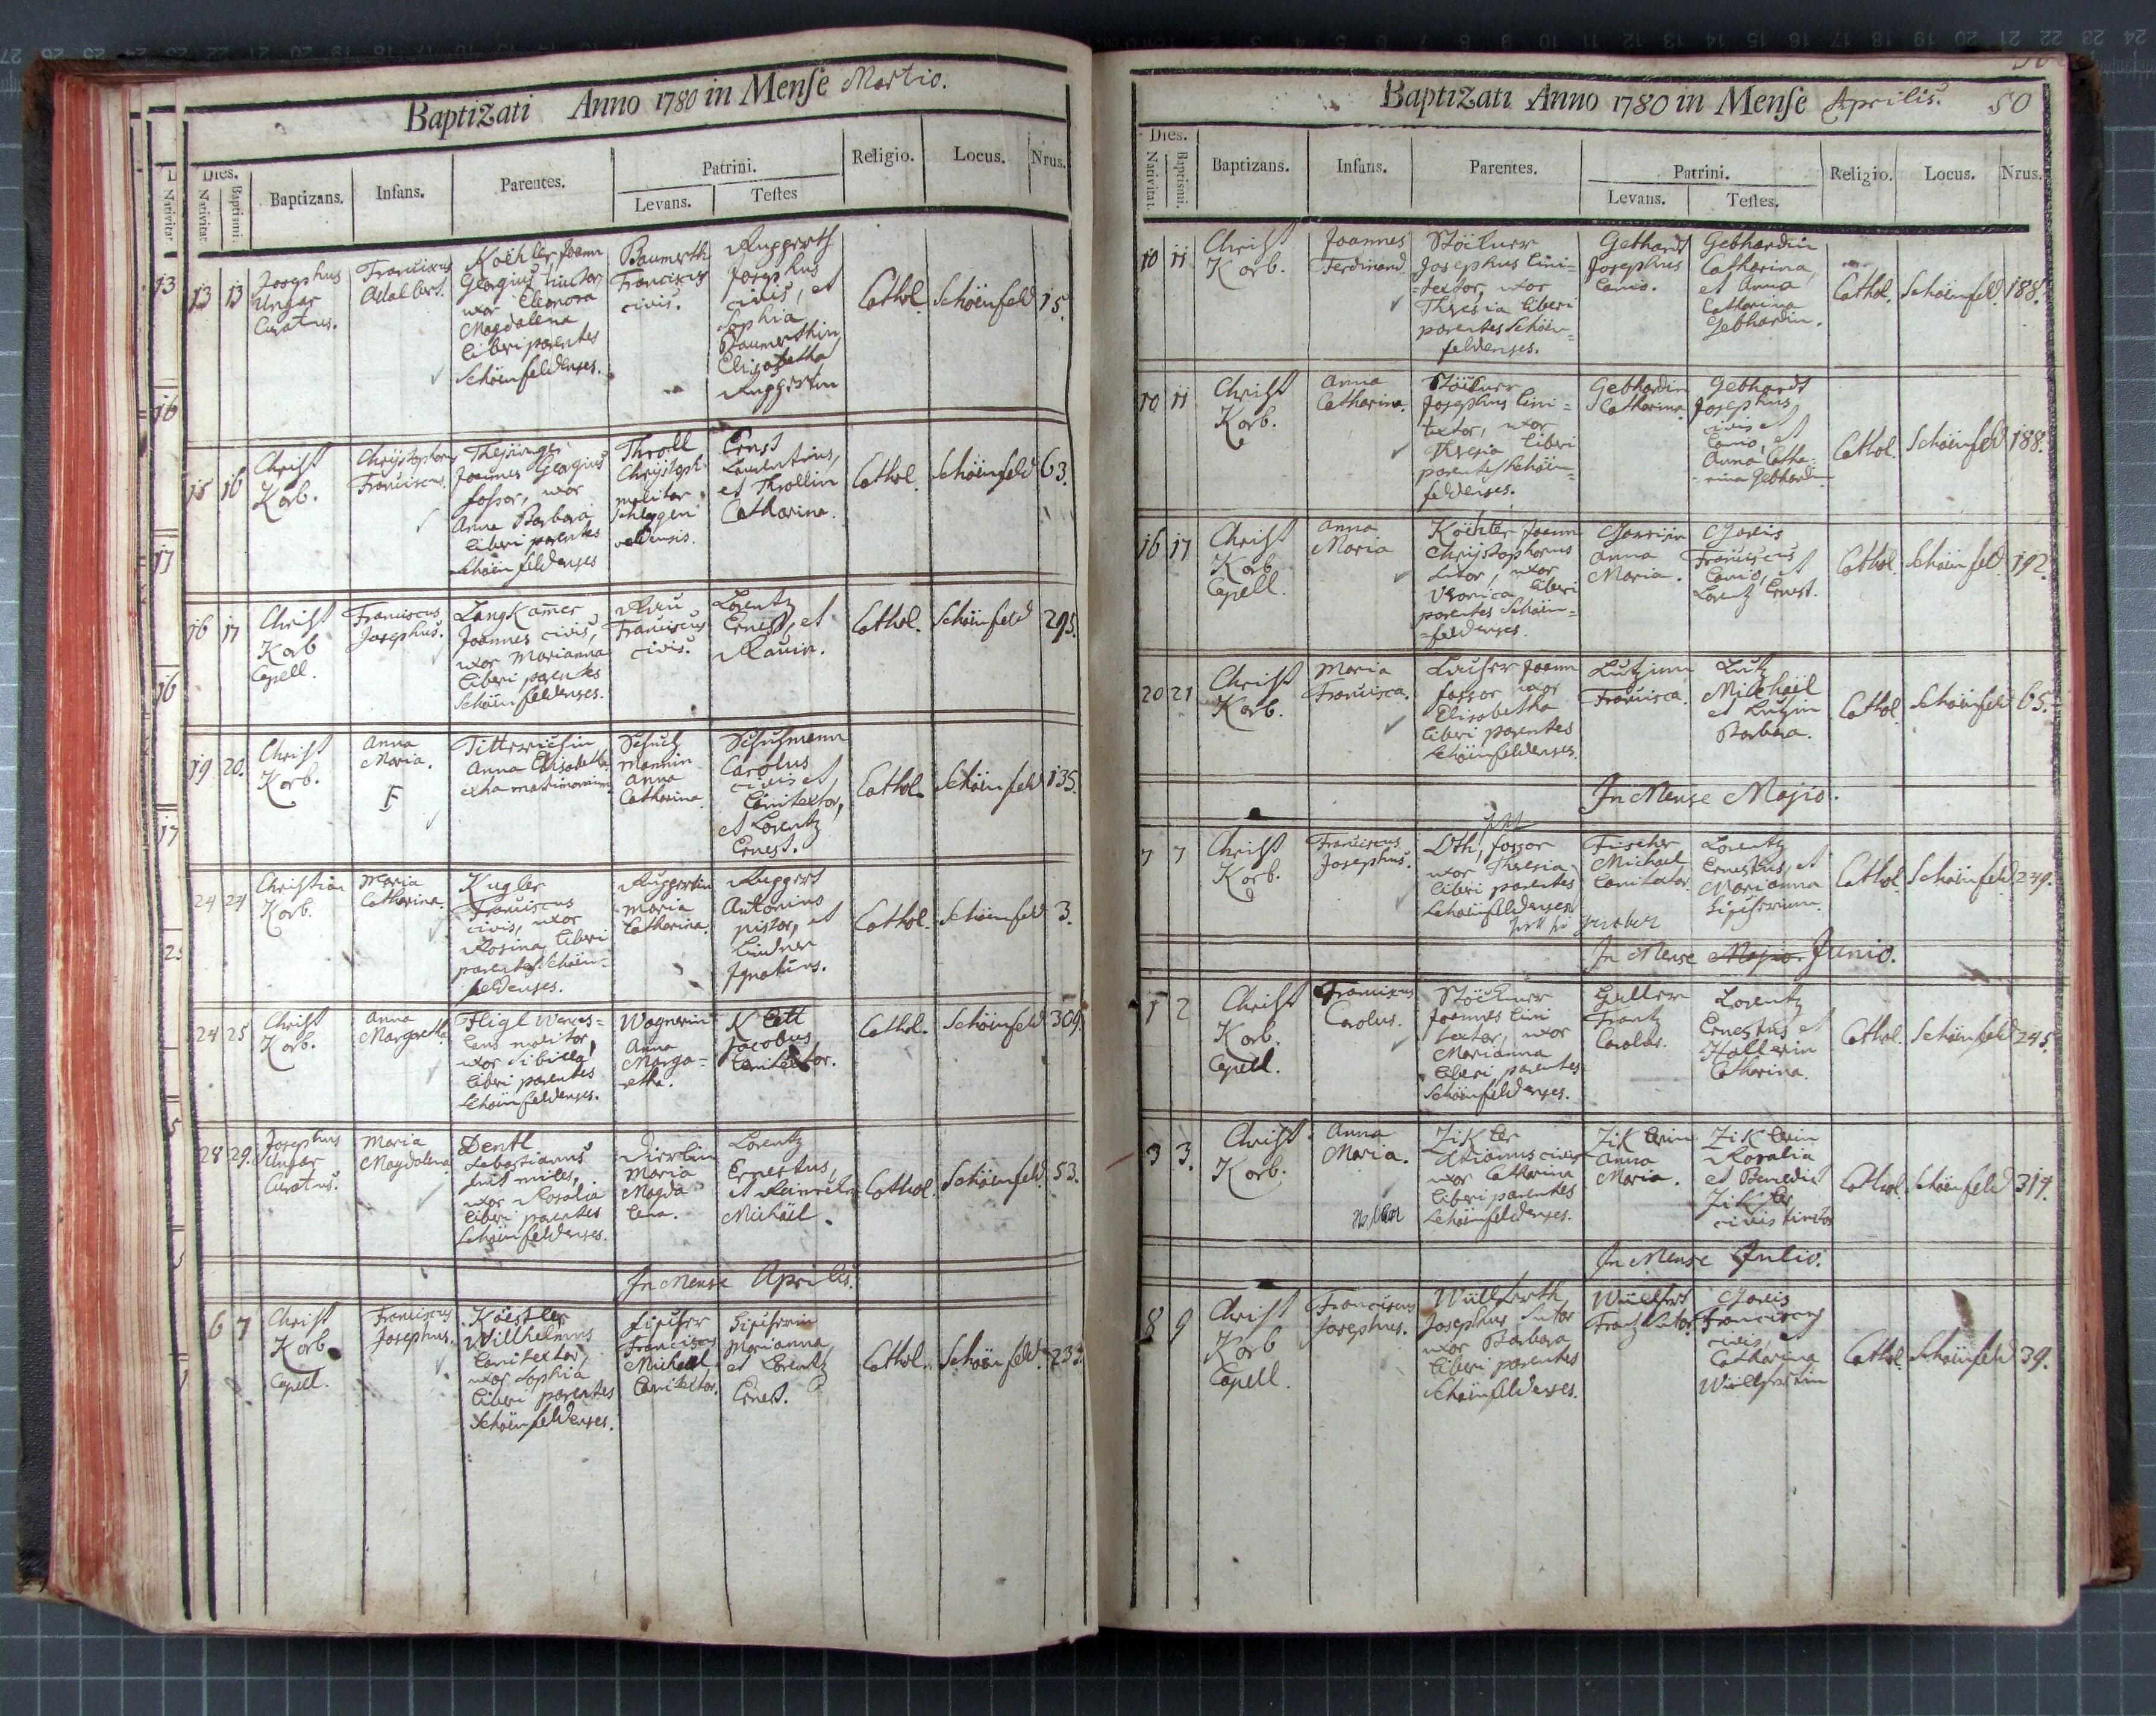 Baptizati Anno 1780 in Mense Martio.
Dies.
Nativitat.
Baptismi.
Baptizans.
Infans.
Parentes.
Patrini.
Levans.
Testes
Religio.
Locus.
Nrus.
13
13
Josephus
Ungar
Curatus.
Franciscus
Adalbert.
Koehler Joann
Georgius, tinctor
uxor Eleonora
Magdalena
liberi parentes
Schöenfeldenses.
Baumerth
Franciscus
civis.
Ruppert
Josephus
civis, et
Sophia
Baumerthin
Elisabetha
Ruppertin
Cathol.
Schöenfeld
15.
15
16
Christ
Korb.
Chrystophorus
Franciscus.
Joannes Georgius
fossor, uxor
Anna Barbara
liberi parentes
Schöenfeldenses
Throll
Chrystoph
molitor
Ernst
Laurentius,
et Throllin
Catharina.
Cathol.
Schöenfeld
63.
16
17
Christ
Korb
Capell.
Franciscus
Josephus.
Langkamer
Joannes civis,
uxor Marianna
liberi parentes
Schöenfeldenses.
Rau
Franciscus
civis.
Lorentz
Ernest, et
Rauin.
Cathol.
Schöenfeld
295.
19
20.
Christ
Korb.
Anna
Maria.
F
Anna Elisabetha
extra matrimonium
Schuch
mannin
Anna
Catharina.
Schuhmann
Carolus
civis et
Lanitextor,
et Lorentz
Ernest.
Cathol.
Schöenfeld
135.
24
24
Christian
Korb.
Maria
Catharina.
Kugler
Franciscus
civis, uxor
Rosina liberi
parentes Schöen-
feldenses.
Ruppertin
Maria
Catharina.
Ruppert
Antonius
pistor, et
Lindner
Ignatius.
Cathol.
Schöenfeld
3.
24
25
Christ
Korb.
Anna
Margaretha
Fligl Wences-
laus molitor,
uxor Sibilla
liberi parentes
Schöenfeldenses.
Wagnerin
Anna
Marga-
retha.
Klett
Jacobus
Lanitextor.
Cathol.
Schöenfeld
309.
28
29.
Josephus
Ungar
Curatus.
Maria
Magdalena
Dentl
Sebastianus
fuit miles,
uxor Rosalia
liberi parentes
Schöenfeldenses.
Maria
Magda
lena.
Lorentz
Ernestus,
et
Michäel.
Cathol.
Schöenfeld
53.
In Mense Aprilis.
6
7
Christ
Korb.
Capell.
Franciscus
Josephus.
Köestler
Willhelmus
Lanitextor,
uxor Sophia
liberi parentes
Schöenfeldenses.
Fischer
Franciscus
Michael
Lanitextor.
Fischerin
Marianna,
et Lorentz
Ernest.
Cathol.
Schöenfeld
233.
Baptizati Anno 1780 in Mense Aprilis.
50
Dies.
Nativitat.
Baptismi.
Baptizans.
Infans.
Parentes.
Patrini.
Levans.
Testes.
Religio.
Locus.
Nrus.
10
11
Christ
Korb.
Joannes
Ferdinand.
Stöckner
Josephus Lini-
textor, uxor
Theresia liberi
parentes Schöen-
feldenses.
Gebhardt
Josephus
Lanio.
Gebhardin
Catharina,
et Anna
Catharina
Gebhardin.
Cathol.
Schöenfeld.
188.
10
11
Christ
Korb.
Anna
Catharina.
Stöckner
Josephus Lini-
textor, uxor
Theresia liberi
parentes Schöen-
feldenses.
Gebhardin
Catharina.
Gebhardt
Josephus,
civis et
Lanio, et
Anna Catha-
rina Gebhardin
Cathol.
Schöenfeld
188.
16
17
Christ
Korb
Capell.
Anna
Maria
Köehler Joann
Chrystophorus
sutor, uxor
Veronica liberi
parentes Schöen-
feldenses.
Anna
Maria.
Franciscus
Lanio, et
Lorentz Ernest.
Cathol.
Schöenfeld
192.
20
21
Christ
Korb.
Maria
Francisca.
Joann
fossor uxor
Elisabetha
liberi parentes
Schöenfeldenses.
Lutzin
Francisca.
Lutz
Michäel
et Lutzin
Barbara.
Cathol.
Schöenfeld
65.
In Mense Majio.
7
7
Christ
Korb.
Franciscus
Josephus.
Oth, fossor
uxor Theresia
liberi parentes
Schöenfeldenses
Fischer
Michael
Lanitextor.
Lorentz
Ernestus, et
Marianna
Fischerin.
Cathol.
Schöenfeld
249.
In Mense Majio Junio.
1
2
Christ
Korb.
Capell.
Franciscus
Carolus.
Stöckner
Joannes Lini
textor, uxor
Marianna
liberi parentes
Schöenfeldenses.
Frantz
Carolus.
Lorentz
Ernestus et
Hallerin
Catharina.
Cathol.
Schöenfeld
245.
3
3.
Christ
Korb.
Anna
Maria.
Zikler
civis
uxor Catharina
liberi parentes
Schöenfeldenses.
Ziklerin
Anna
Maria.
Ziklerin
Rosalia
et Benedict
Zikler
civis tinctor
Cathol.
Schöenfeld
314.
In Mense Julio.
8
9
Christ
Korb
Capell.
Franciscus
Josephus.
Wüllferth
Josephus Sutor
uxor Barbara
liberi parentes
Schöenfeldenses.
Wüllfert
Frantz sutor.
Franciscus
civis, et
Catharina
Wüllfertin
Cathol.
Schöenfeld
39.